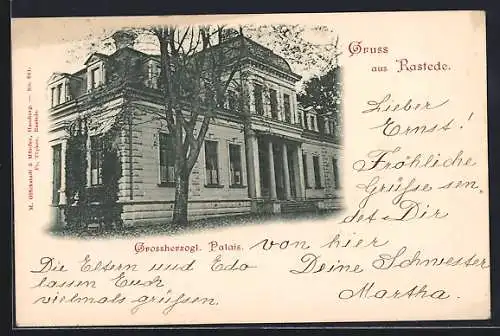 Gruss
aus Rastede.
M. Glückstadt & Münden, Hamburg. — No.
Rastede.
Grossherzogl. Palais.
Lieber
Ernst!
Fröhliche
Grüße sen-
det Dir
von hier
Deine Schwester
Martha.
Die Eltern und Edo
lassen Euch
vielmals grüßen.